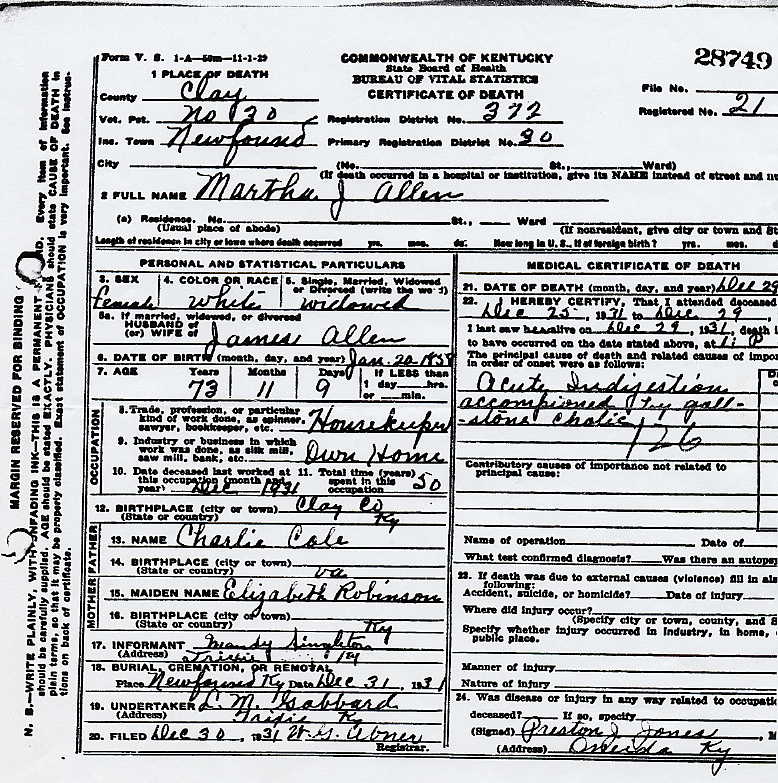 Form V. S. 1-A—50m—11-1-29
COMMONWEALTH OF KENTUCKY
State Board of Health
BUREAU OF VITAL STATISTICS
CERTIFICATE OF DEATH
28749
File No.
Registered No. 21
1 PLACE OF DEATH
County Clay
Vot. Pct. No 30 Registration District No. 372
Inc. Town Newfound Primary Registration District No. 30
City (No. St., Ward)
(If death occurred in a hospital or institution, give its NAME instead of street and nu
2 FULL NAME Martha J Allen
(a) Residence. No. St., Ward
(Usual place of abode) (If nonresident, give city or town and St
Length of residence in city or town where death occurred yrs. mos. ds. How long in U. S., if of foreign birth? yrs. mos. d
PERSONAL AND STATISTICAL PARTICULARS
3. SEX Female
4. COLOR OR RACE White
5. Single, Married, Widowed or Divorced (write the word) Widowed
5a. If married, widowed, or divorced
HUSBAND of
(or) WIFE of James Allen
6. DATE OF BIRTH (month, day, and year) Jan. 20-1858
7. AGE Years 73 Months 11 Days 9 If LESS than 1 day hrs. or min.
OCCUPATION
8. Trade, profession, or particular kind of work done, as spinner, sawyer, bookkeeper, etc. Housekeeper
9. Industry or business in which work was done, as silk mill, saw mill, bank, etc. Own Home
10. Date deceased last worked at this occupation (month and year) Dec 1931
11. Total time (years) spent in this occupation 50
12. BIRTHPLACE (city or town) Clay Co
(State or country) Ky
FATHER
13. NAME Charlie Cole
14. BIRTHPLACE (city or town)
(State or country) Va
MOTHER
15. MAIDEN NAME Elizabeth Robinson
16. BIRTHPLACE (city or town)
(State or country) Ky
17. INFORMANT Mandy Singleton
(Address) Trixie Ky
18. BURIAL, CREMATION, OR REMOVAL
Place Newfound Ky Date Dec 31, 1931
19. UNDERTAKER L. M. Gabbard
(Address) Trixie Ky
20. FILED Dec 30, 1931 W. G. Abner
Registrar.
MEDICAL CERTIFICATE OF DEATH
21. DATE OF DEATH (month, day, and year) Dec 29
22. I HEREBY CERTIFY, That I attended deceased
Dec 25, 1931 to Dec 29
I last saw her alive on Dec 29, 1931, death i
to have occurred on the date stated above, at 11 P
The principal cause of death and related causes of impor
in order of onset were as follows:
Acute Indigestion
accompioned by gall-
-stone cholic
126
Contributory causes of importance not related to
principal cause:
Name of operation Date of
What test confirmed diagnosis? Was there an autopsy
23. If death was due to external causes (violence) fill in als
following:
Accident, suicide, or homicide? Date of injury
Where did injury occur?
(Specify city or town, county, and S
Specify whether injury occurred in industry, in home,
public place.
Manner of injury
Nature of injury
24. Was disease or injury in any way related to occupati
deceased? If so, specify
(Signed) Preston J. Jones, M
(Address) Oneida Ky
MARGIN RESERVED FOR BINDING
N. B.—WRITE PLAINLY, WITH UNFADING INK—THIS IS A PERMANENT Every item of information
should be carefully supplied. AGE should be stated EXACTLY. PHYSICIANS should state CAUSE OF DEATH in
plain terms, so that it may be properly classified. Exact statement of OCCUPATION is very important. See instruc-
tions on back of certificate.